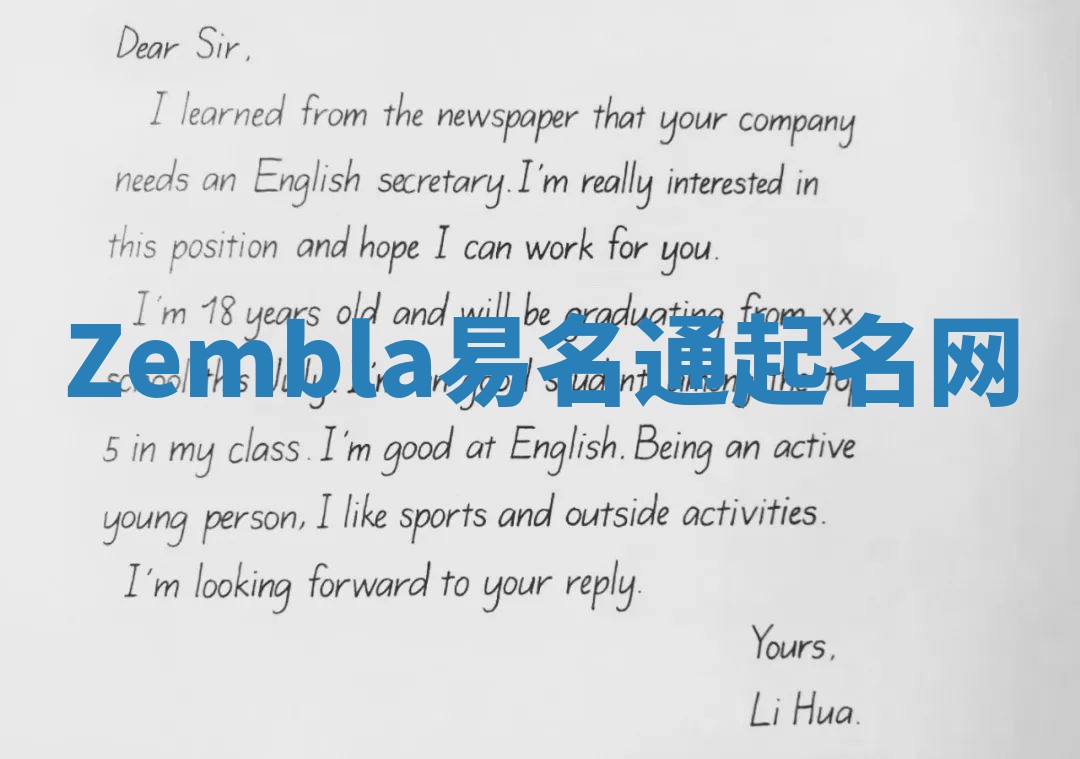 Dear Sir,
I learned from the newspaper that your company
needs an English secretary. I'm really interested in
this position and hope I can work for you.
I'm 18 years old and will be graduating from xx
Zembla易名通起名网
school this July. I'm an good student among the top
5 in my class. I'm good at English. Being an active
young person, I like sports and outside activities.
I'm looking forward to your reply.
Yours,
Li Hua.